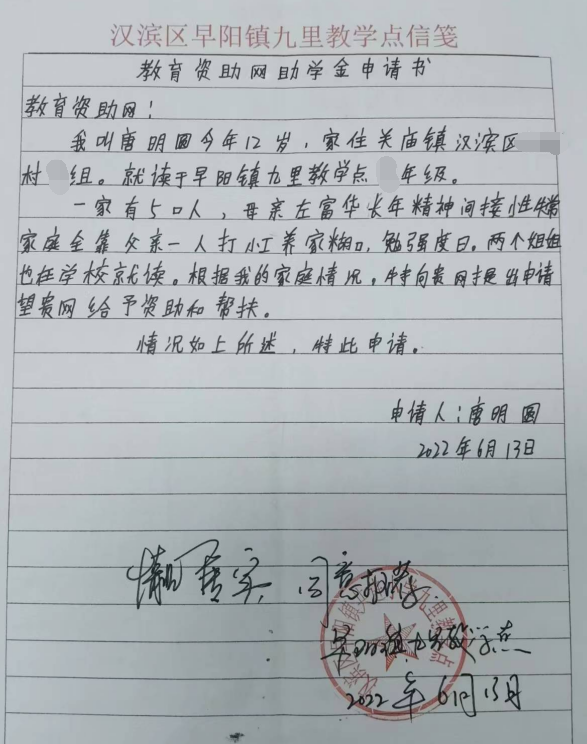 汉滨区早阳镇九里教学点信笺
教育资助网助学金申请书
教育资助网：
我叫唐明圆今年12岁，家住关庙镇汉滨区
村 组。就读于早阳镇九里教学点 年级。
一家有5口人，母亲左富华长年精神间接性失常
家庭全靠父亲一人打小工养家糊口，勉强度日。两个姐姐
也在学校就读。根据我的家庭情况，特向贵网提出申请
望贵网给予资助和帮扶。
情况如上所述，特此申请。
申请人：唐明圆
2022年6月13日
情况属实 同意推荐
早阳镇九里教学点
2022年6月13日
汉滨区早阳镇九里教学点